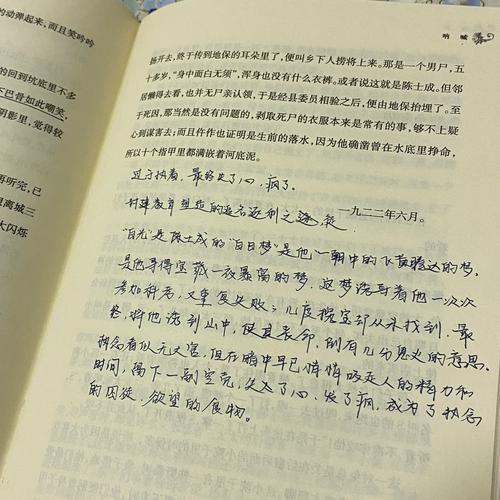 的动弹起来，而且笑吟吟
的回到坑底里不多
下巴骨如此嘲笑，
阴影里，觉得较
再听完，已
离城三
大闪烁
呐喊
扬开去，终于传到地保的耳朵里了，便叫乡下人捞将上来。那是一个男尸，五
十多岁，“身中面白无须”，浑身也没有什么衣裤。或者说这就是陈士成。但邻
居懒得去看，也并无尸亲认领，于是经县委员相验之后，便由地保抬埋了。至
于死因，那当然是没有问题的，剥取死尸的衣服本来是常有的事，够不上疑
心到谋害去；而且仵作也证明是生前的落水，因为他确凿曾在水底里挣命，
所以十个指甲里都满嵌着河底泥。
过于执着，最终失了心，疯了。
一九二二年六月。
封建教育塑造的追名逐利之
“白光”是陈士成的“白日梦”是他一朝中的飞黄腾达的梦，
是他寻得宝藏一夜暴富的梦。这梦诱导着他一次次
参加科考，又重复失败；几度挖宝却从未找到，最
终，将他诱到山中，使其丧命，颇有几分见义的意思。
执念看似无大害，但在暗中早已悄悄吸走人的精力和
时间，留下一副空壳，失去了心，发了疯，成为了执念
的囚徒，欲望的食物。